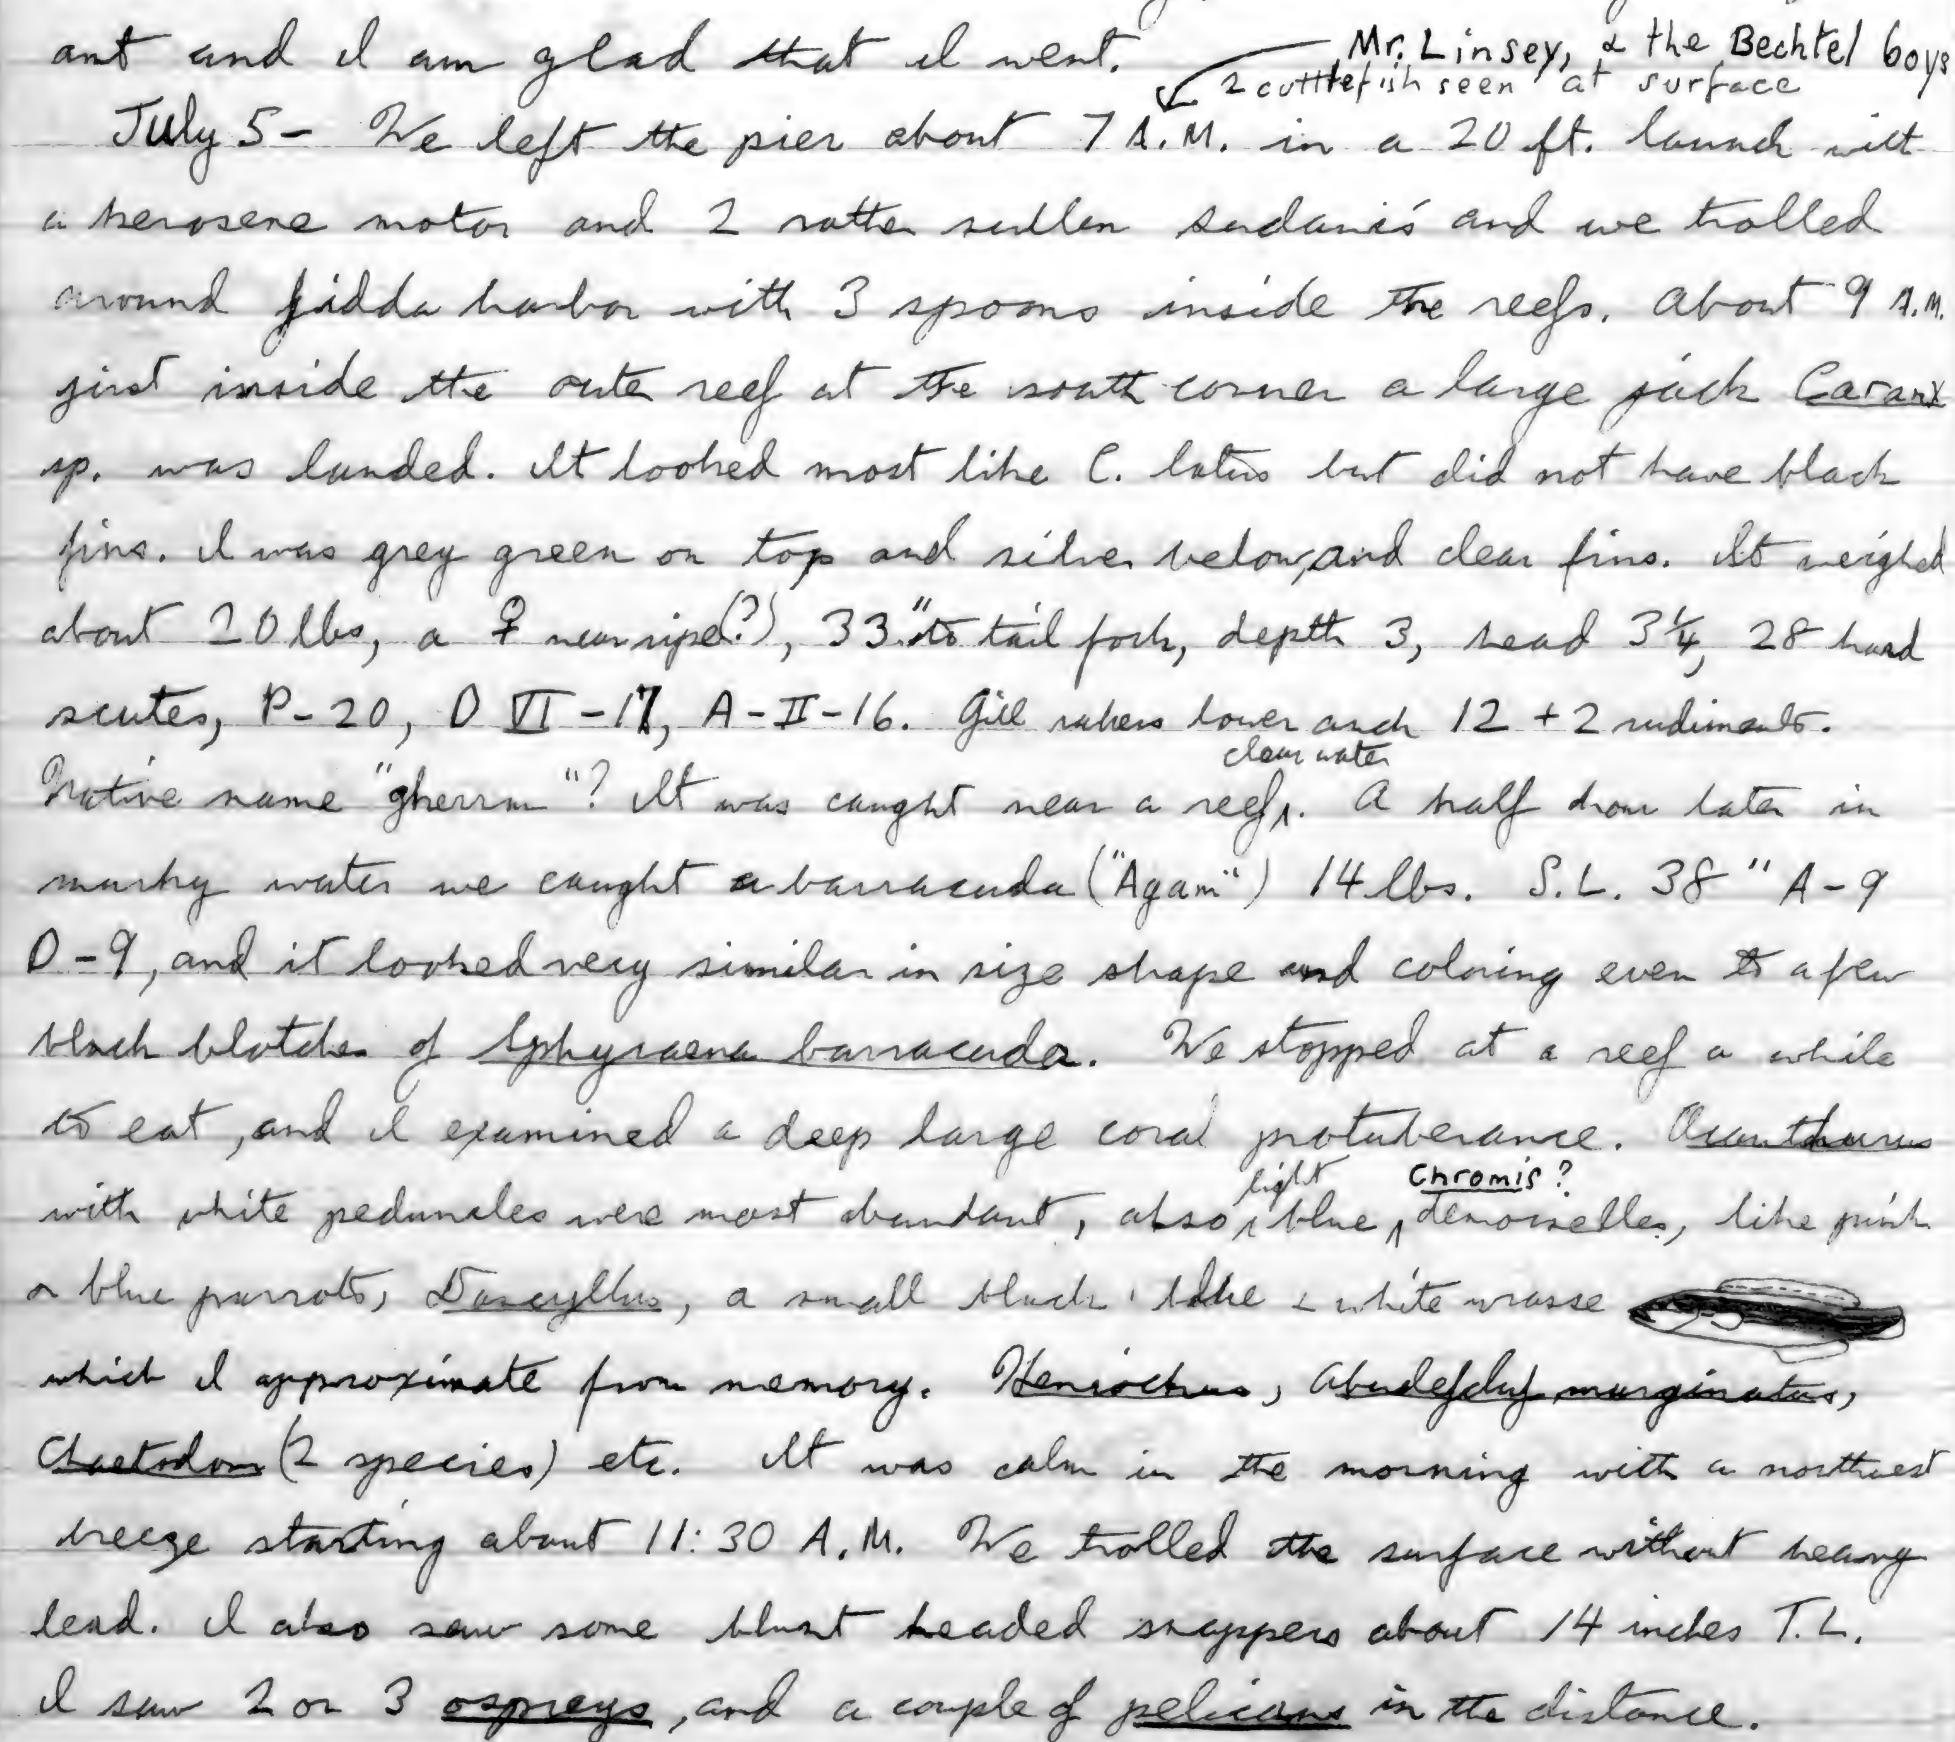 ant and I am glad that I went.
Mr. Linsey, & the Bechtel boys
2 cuttlefish seen at surface
July 5- We left the pier about 7 A.M. in a 20 ft. launch with
a kerosene motor and 2 rather sullen sudanis and we trolled
around Jidda harbor with 3 spoons inside the reefs. About 9 A.M.
just inside the outer reef at the south corner a large jack Caranx
sp. was landed. It looked most like C. latus but did not have black
fins. I was grey green on top and silver below, and clear fins. It weighed
about 20 lbs, a ♀ near ripe(?), 33" to tail fork, depth 3, head 3¼, 28 hard
scutes, P-20, D VI-17, A-II-16. Gill rakers lower arch 12 + 2 rudiments.
clear water
Native name "gherrm"? It was caught near a reef. A half hour later in
murky water we caught a barracuda ("Agam") 14 lbs. S.L. 38" A-9
D-9, and it looked very similar in size shape and coloring even to a few
black blotches of Sphyraena barracuda. We stopped at a reef a while
to eat, and I examined a deep large coral protuberance. Acanthurus
light Chromis?
with white peduncles were most abundant, also blue demoiselles, like pink
& blue parrots, Dascyllus, a small black, blue & white wrasse
which I approximate from memory. Heniochus, Abudefduf marginatus,
Chaetodon (2 species) etc. It was calm in the morning with a northwest
breeze starting about 11:30 A.M. We trolled the surface without heavy
lead. I also saw some blunt headed snappers about 14 inches T.L.
I saw 2 or 3 ospreys, and a couple of pelicans in the distance.